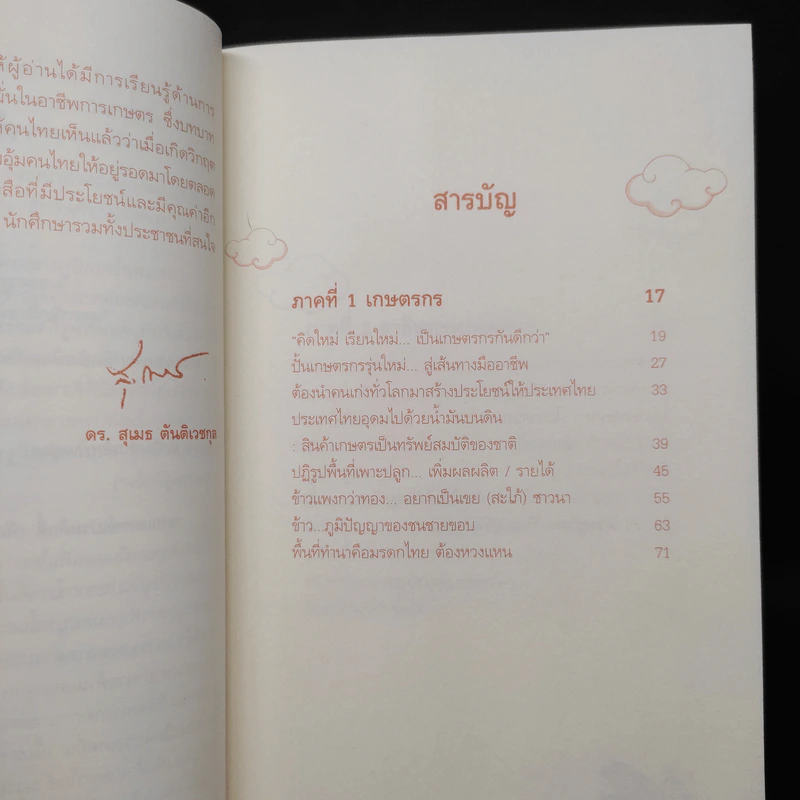 ผู้อ่านได้มีการเรียนรู้ด้านการ
ในอาชีพการเกษตร ซึ่งบทบาท
คนไทยเห็นแล้วว่าเมื่อเกิดวิกฤต
อุ้มคนไทยให้อยู่รอดมาโดยตลอด
ที่มีประโยชน์และมีคุณค่าอีก
นักศึกษารวมทั้งประชาชนที่สนใจ
ดร. สุเมธ ตันติเวชกุล
สารบัญ
ภาคที่ 1 เกษตรกร 17
"คิดใหม่ เรียนใหม่... เป็นเกษตรกรกันดีกว่า" 19
ปั้นเกษตรกรรุ่นใหม่... สู่เส้นทางมืออาชีพ 27
ต้องนำคนเก่งทั่วโลกมาสร้างประโยชน์ให้ประเทศไทย 33
ประเทศไทยอุดมไปด้วยน้ำมันบนดิน
: สินค้าเกษตรเป็นทรัพย์สมบัติของชาติ 39
ปฏิรูปพื้นที่เพาะปลูก... เพิ่มผลผลิต / รายได้ 45
ข้าวแพงกว่าทอง... อยากเป็นเขย (สะใภ้) ชาวนา 55
ข้าว...ภูมิปัญญาของชนชายขอบ 63
พื้นที่ทำนาคือมรดกไทย ต้องหวงแหน 71